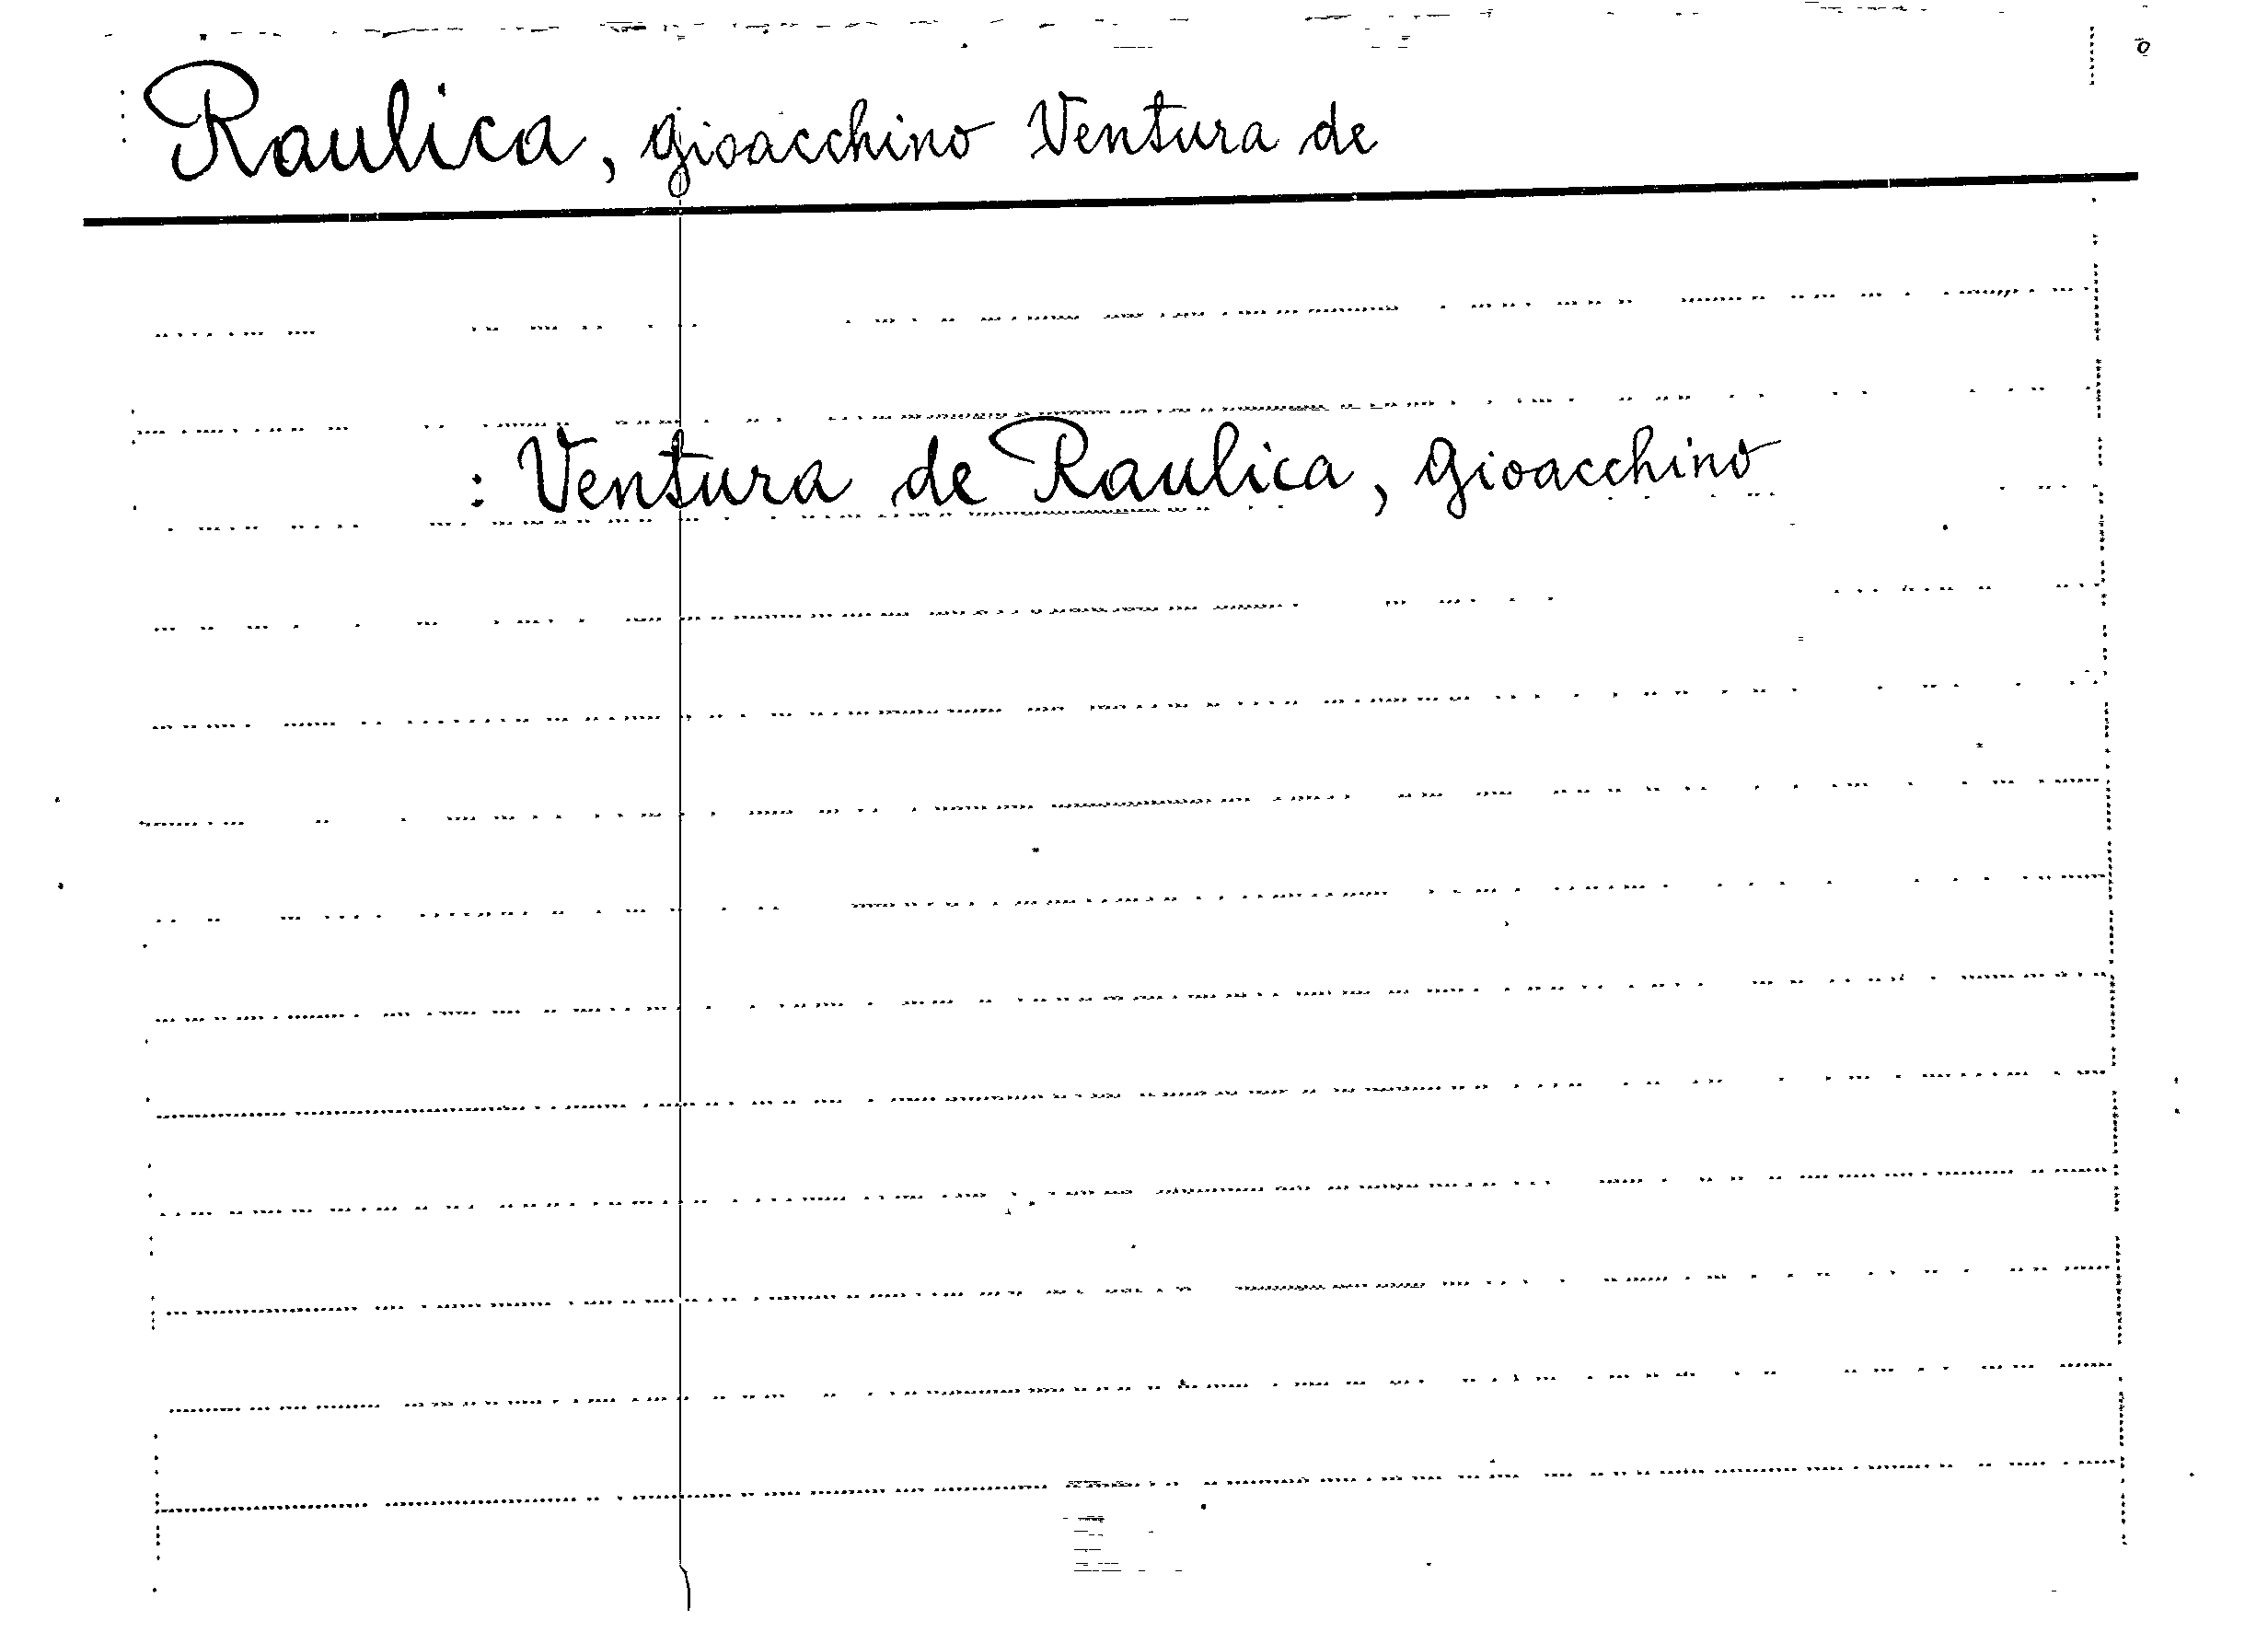 Raulica, Gioacchino Ventura de
: Ventura de Raulica, Gioacchino